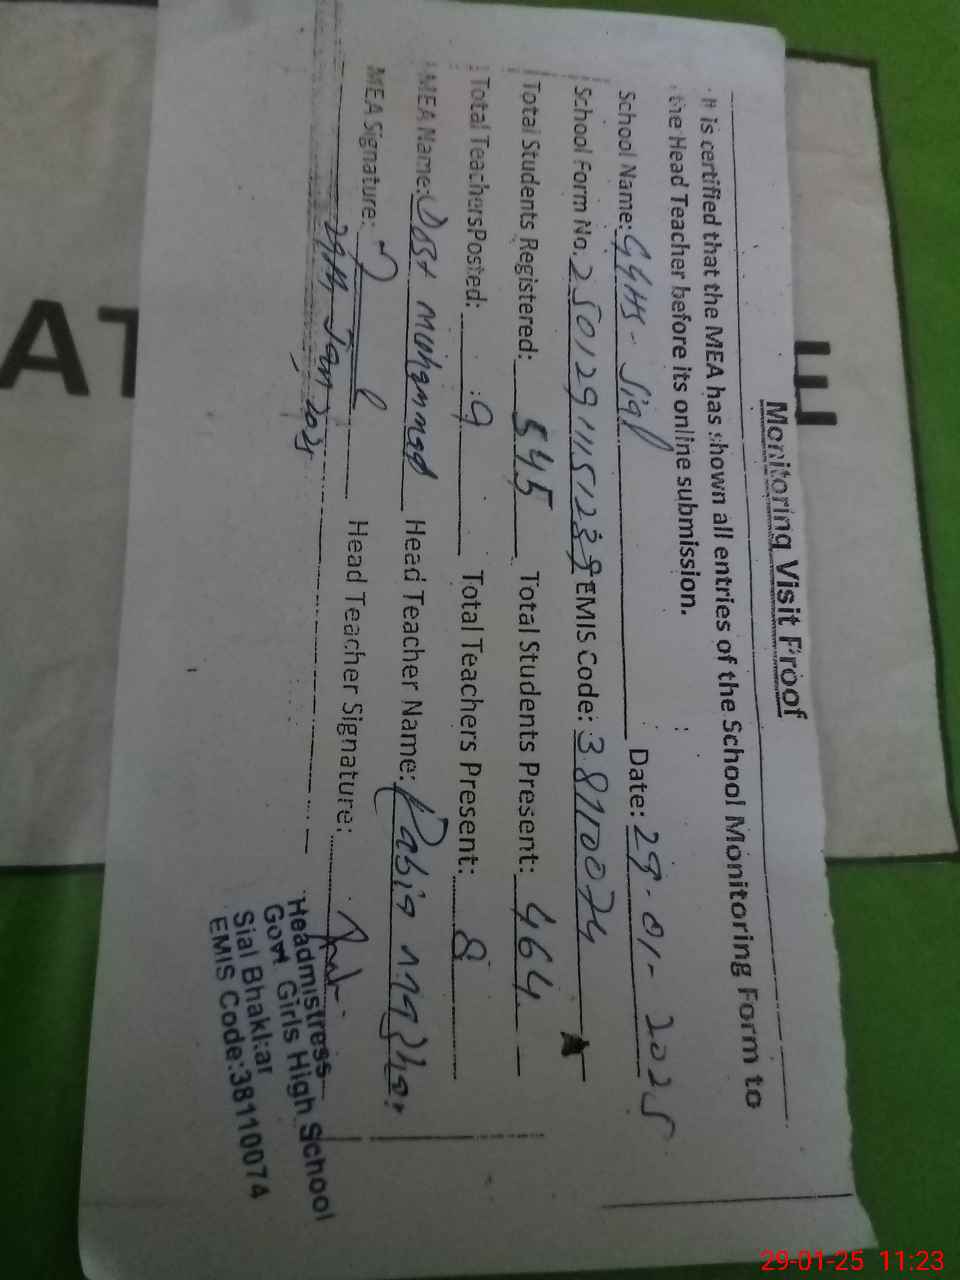 Monitoring Visit Proof
It is certified that the MEA has shown all entries of the School Monitoring Form to
the Head Teacher before its online submission.
School Name: GGHS - Sial Date: 29-01-2025
School Form No. EMIS Code: 38110074
Total Students Registered: 545 Total Students Present: 464
Total Teachers Posted: 9 Total Teachers Present: 8
MEA Name: Dost Muhammad Head Teacher Name: Rabia
MEA Signature: Head Teacher Signature:
29th Jan 2025
Headmistress
Govt Girls High School
Sial Bhakhar
EMIS Code:38110074
AT
E
29-01-25 11:23